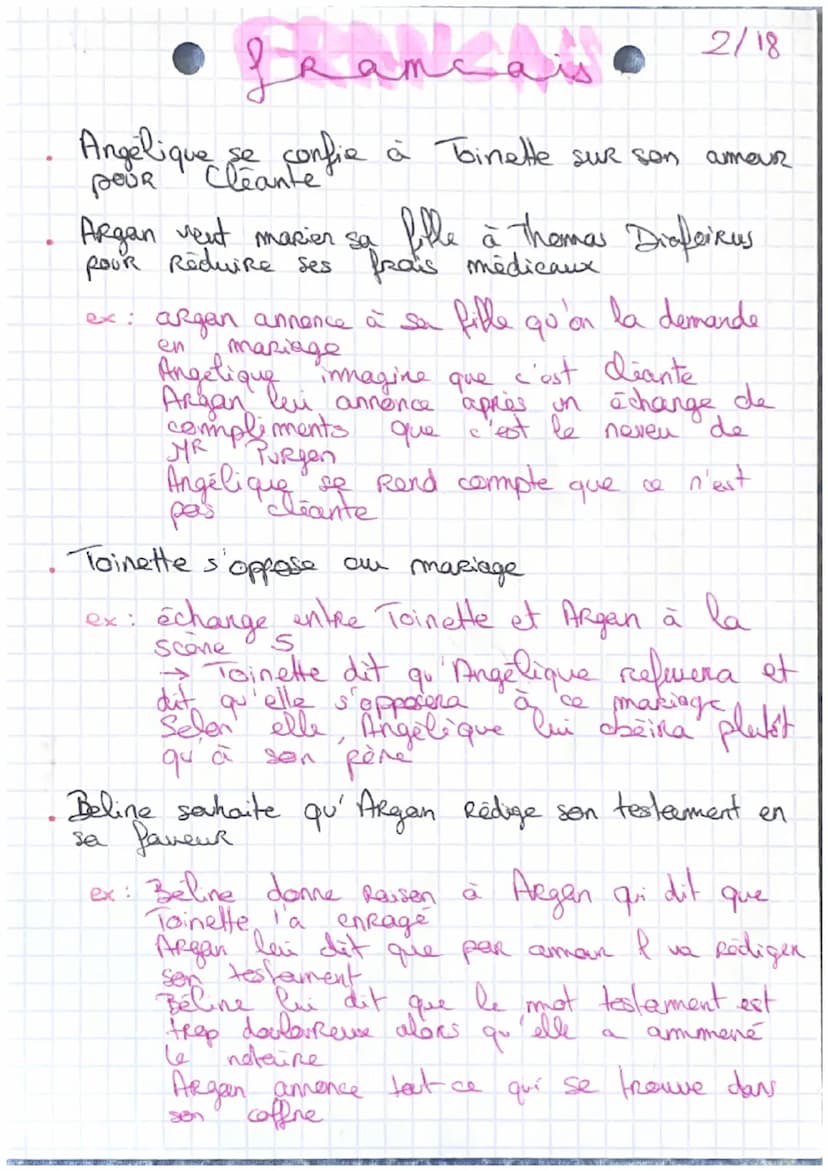 FRANCAIS
francais
2/18
. Angélique se confie à Toinette sur son amour
pour Cléante
. Argan veut marier sa fille à Thomas Diafoirus
pour Réduire ses frais médicaux
ex : argan annonce à sa fille qu'on la demande
en mariage
Angélique immagine que c'est Cléante
Argan lui annonce après un échange de
compliments que c'est le neveu de
MR Purgon
Angélique se Rend compte que ce n'est
pas cléante
. Toinette s'oppose au mariage
ex : échange entre Toinette et Argan à la
scène 5
→ Toinette dit qu'Angélique refusera et
dit qu'elle s'opposera à ce mariage
Selon elle, Angélique lui obéira plutôt
qu'à son père
. Beline souhaite qu'Argan Rédige son testement en
sa faveur
ex : Béline donne Raison à Argan qui dit que
Toinette l'a enragé
Argan lui dit que par amour il va rédiger
son testament
Béline lui dit que le mot testement est
trop douloureux alors qu'elle a ammené
le notaire
Argan annonce tout ce qui se trouve dans
son coffre